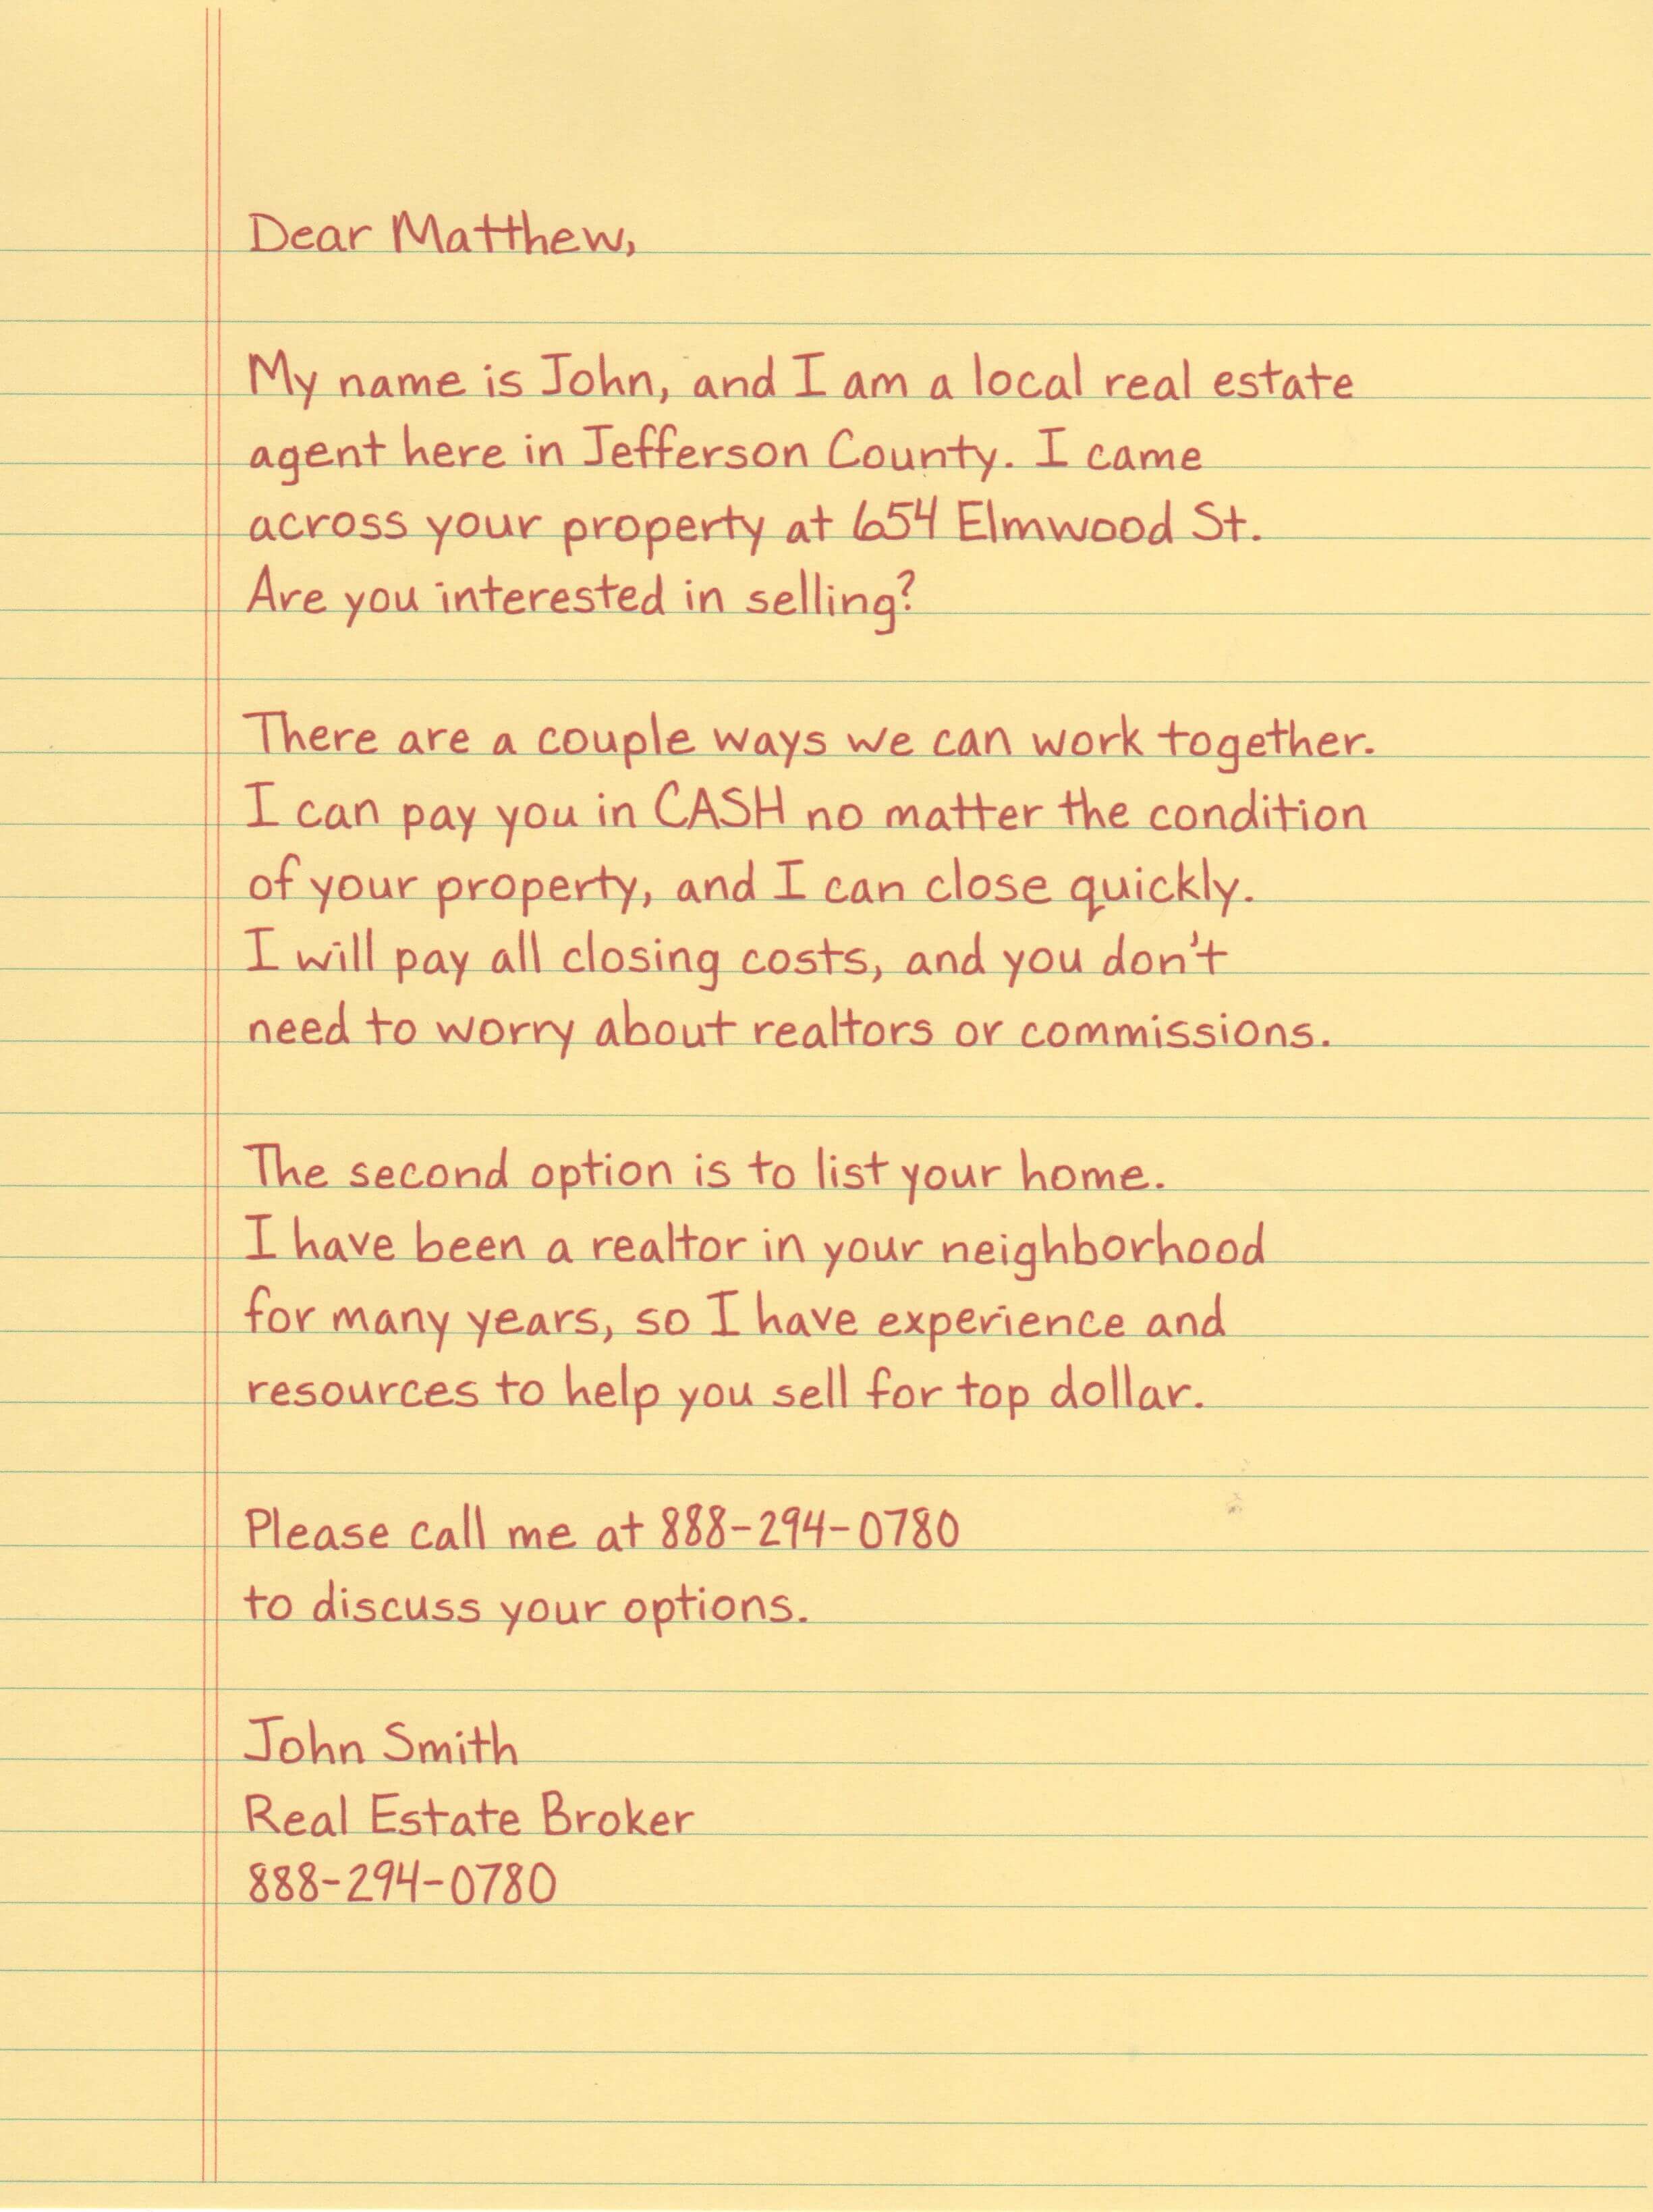 Dear Matthew,
My name is John, and I am a local real estate
agent here in Jefferson County. I came
across your property at 654 Elmwood St.
Are you interested in selling?
There are a couple ways we can work together.
I can pay you in CASH no matter the condition
of your property, and I can close quickly.
I will pay all closing costs, and you don't
need to worry about realtors or commissions.
The second option is to list your home.
I have been a realtor in your neighborhood
for many years, so I have experience and
resources to help you sell for top dollar.
Please call me at 888-294-0780
to discuss your options.
John Smith
Real Estate Broker
888-294-0780